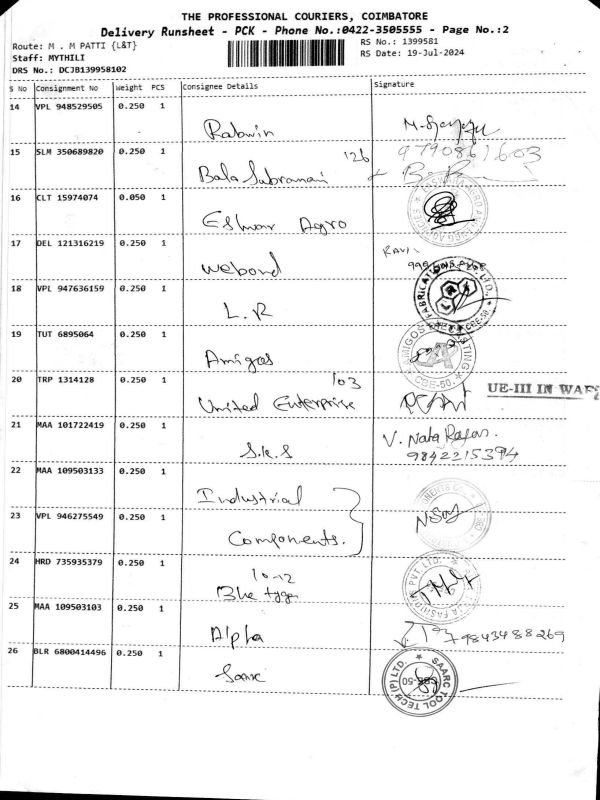 THE PROFESSIONAL COURIERS, COIMBATORE
Delivery Runsheet - PCK - Phone No.:0422-3505555 - Page No.:2
Route: M . M PATTI {L&T}
RS No.: 1399581
Staff: MYTHILI
RS Date: 19-Jul-2024
DRS No.: DCJB139958102
S No Consignment No Weight PCS Consignee Details Signature
14 VPL 948529505 0.250 1
15 SLM 350689820 0.250 1 Bala Subramani 126 9790861603
16 CLT 15974074 0.050 1 Eshwar Agro
17 DEL 121316219 0.250 1 Webond RAVI
18 VPL 947636159 0.250 1 L.R FABRICATIONS LTD. CBE-50.
19 TUT 6895064 0.250 1 Amigos CBE-50.
20 TRP 1314128 0.250 1 United Enterprise 103
UE-III IN
21 MAA 101722419 0.250 1 S.K.S V. Nata Rajan. 9842215394
22 MAA 109503133 0.250 1 Industrial
23 VPL 946275549 0.250 1 Components.
24 HRD 735935379 0.250 1 10-12 PVT. LTD.
25 MAA 109503103 0.250 1 Alpha 9843488269
26 BLR 6800414496 0.250 1 Saarc SAARC TOOL TECH (P) LTD. CBE-50